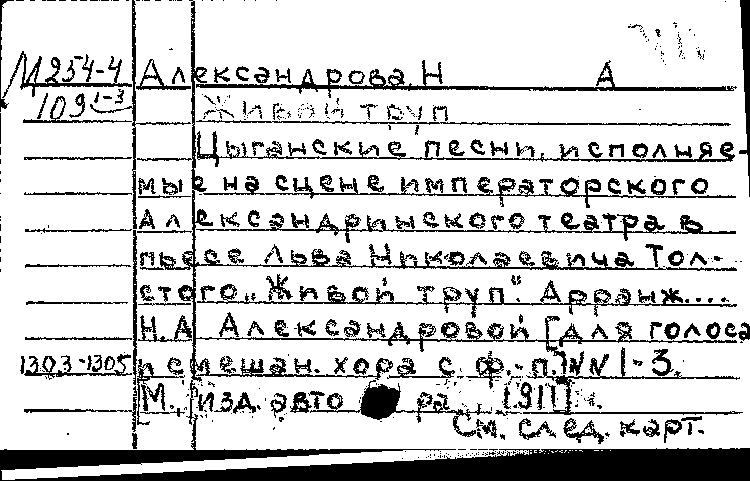 М254-4 Александрова, Н А
109 1-3 Живой труп
Цыганские песни, исполняе-
мые на сцене императорского
Александринского театра в
пьесе Льва Николаевича Тол-
стого „Живой труп“. Арранж....
Н.А. Александровой [для голоса
1303-1305 и смешан. хора с ф.-п.] NN 1-3.
М., изд. авто ра, [1911].
См. след. карт.